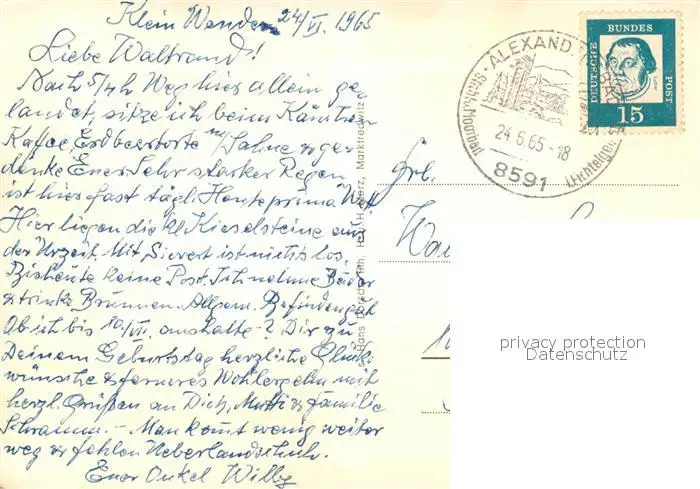 Klein Wenden 24/VI. 1965
Liebe Waltraud!
Nach 5/4 h Weg hier allein ge
landet, sitze ich beim Kännchen
Kaffee, Erdbeertorte m/Sahne & ge-
denke Euer. Sehr starker Regen
ist hier fast tägl. Heute prima
Hier liegen die kl. Kieselsteine aus
der Urzeit. Mit Sievert ist nichts los.
Bisheute keine Post. Ich nehme Bäder
& trinke Brunnen. Allgem. Befinden gut
Ob ich bis 10./VII. aushalte-? Dir zu
Deinem Geburtstag herzliche Glück-
wünsche & ferneres Wohlergehn mit
herzl. Grüßen an Dich, Mutti & Familie
Schramm. – Man komt wenig weiter
weg & fehlen Ueberlandschuh.
Euer Onkel Willy
Marktredwitz
ALEXAND
24.6.65-18
8591
DEUTSCHE BUNDES POST
15
Frl.
Wa
privacy protection
Datenschutz